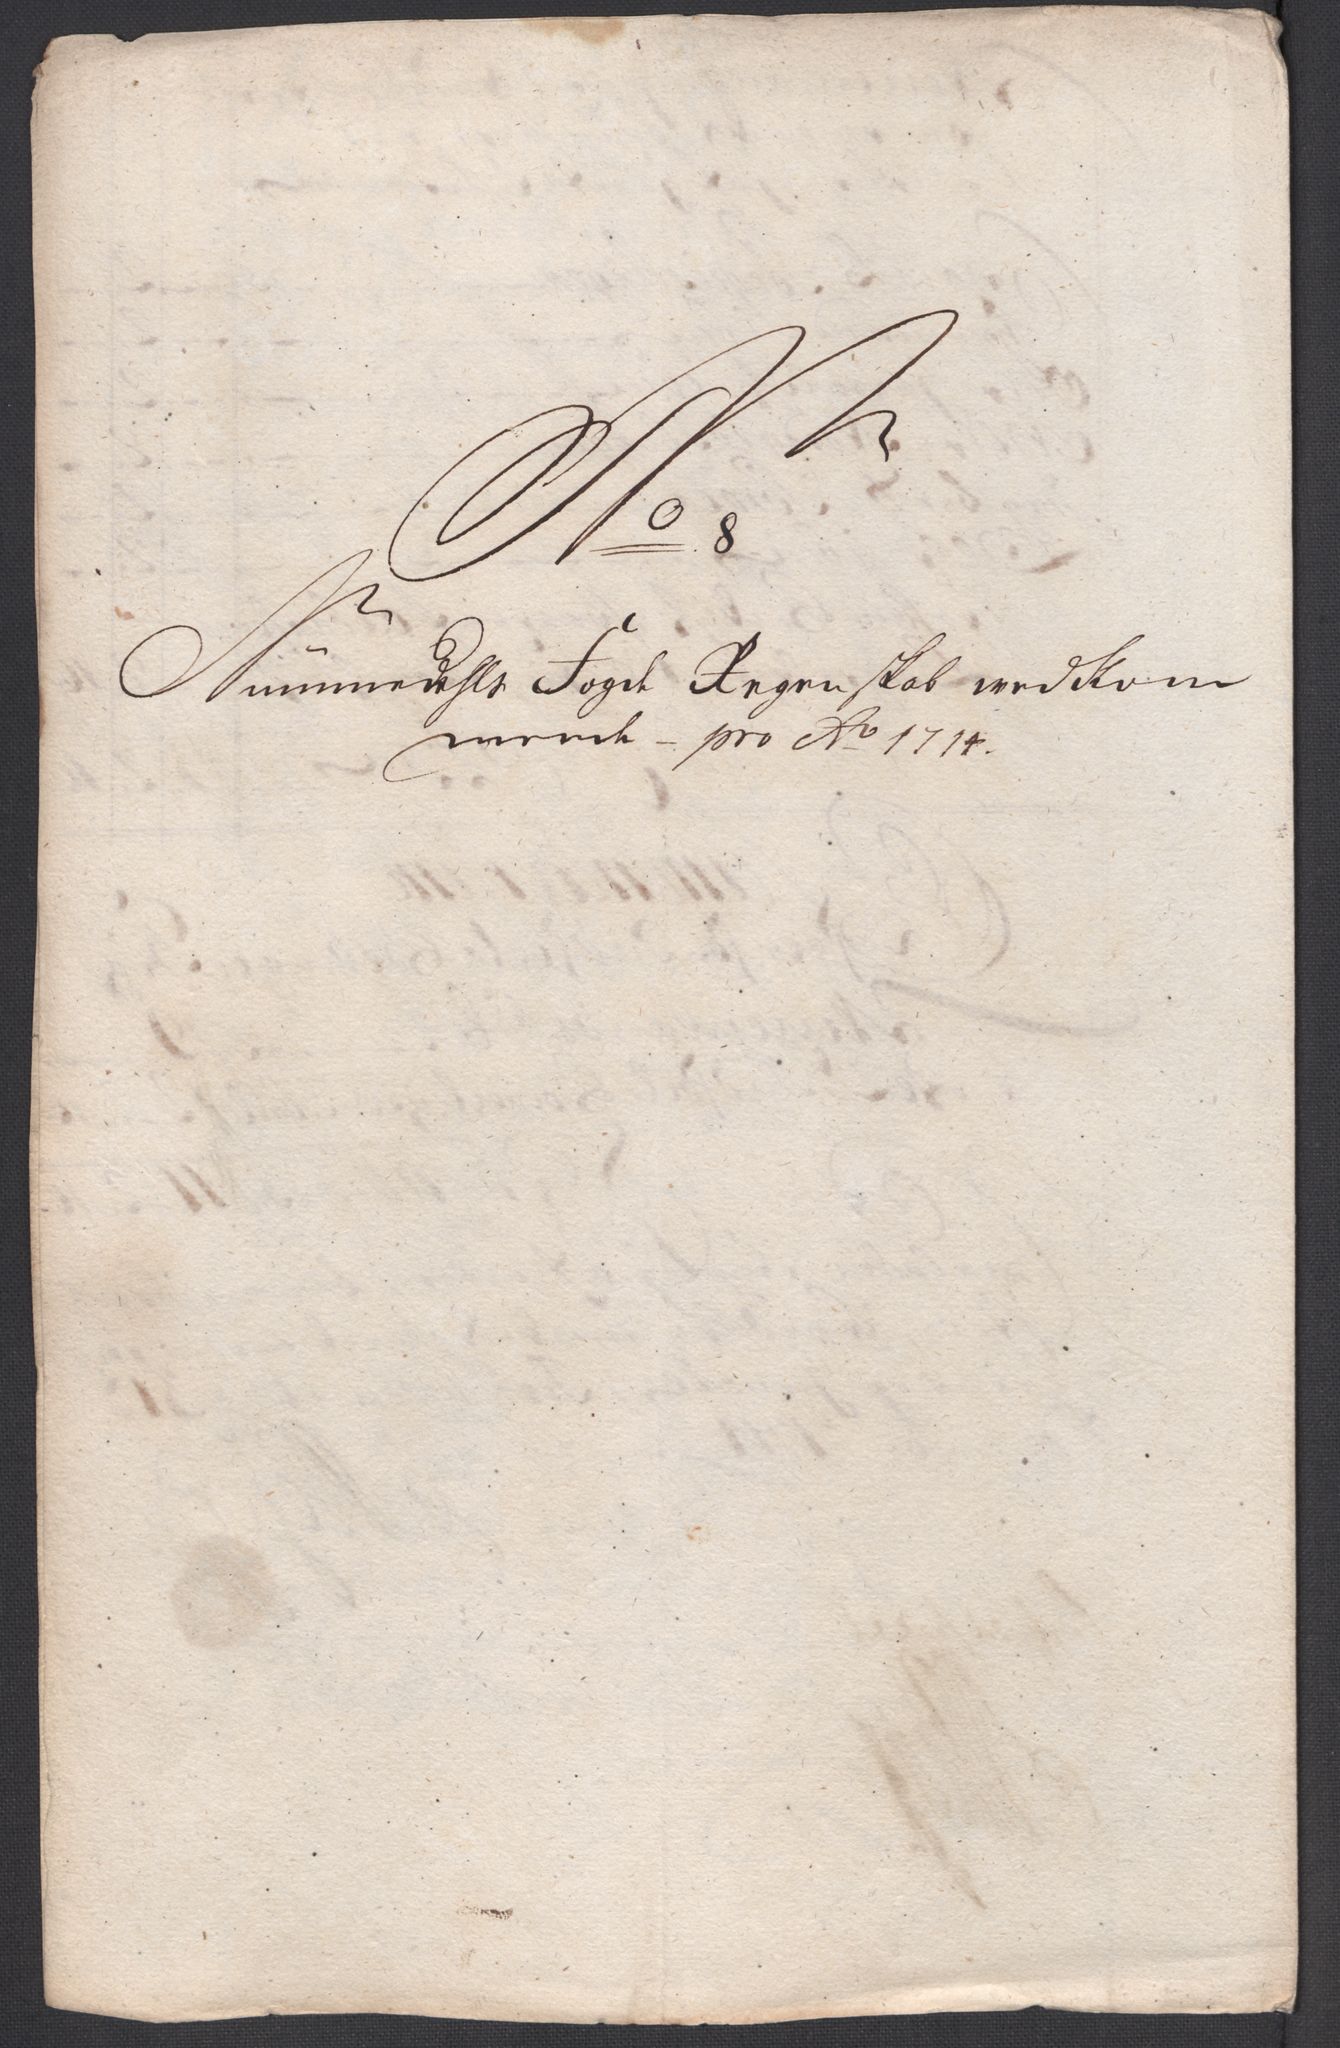 No 8
Nummedahls Fogde Regenskab wedkom
mende - pro Ao 1714.